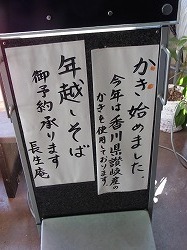 かき始めました。
今年は香川県讃岐産の
かきを使用しております。
年越しそば
御予約承ります
長生庵